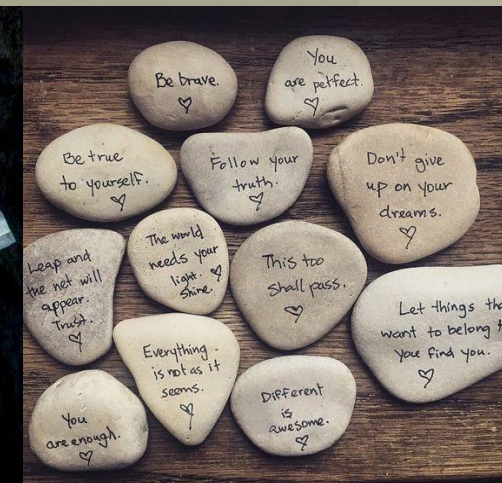 Be brave.
You
are perfect.
Be true
to yourself.
Follow your
truth.
Don't give
up on your
dreams.
Leap and
the net will
appear.
Trust.
The world
needs your
light.
Shine.
This too
shall pass.
Let things
want to belong
you find you.
Everything
is not as it
seems.
You
are enough.
Different
is
awesome.